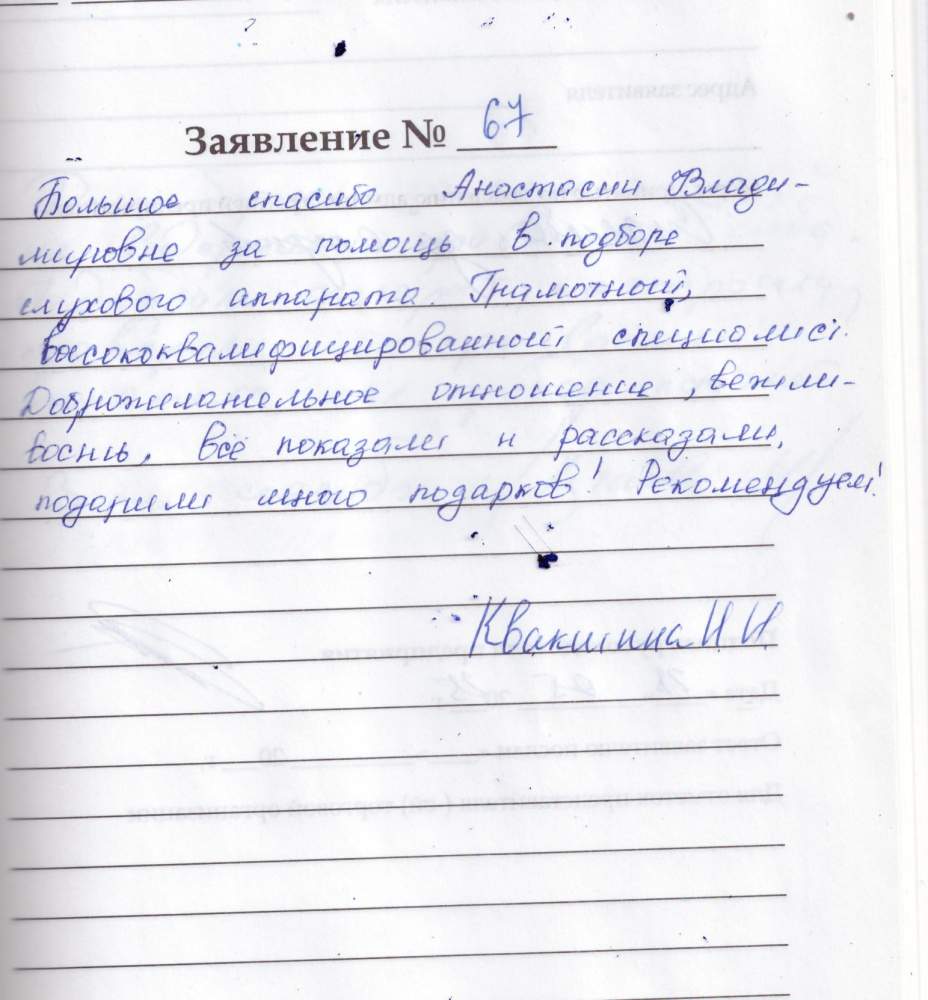 Заявление № 67
Большое спасибо Анастасии Влади-
мировне за помощь в подборе
слухового аппарата. Грамотный,
высококвалифицированный специалист.
Доброжелательное отношение, вежли-
вость, всё показали и рассказали,
подарили много подарков! Рекомендуем!
Квакшина Н.И.